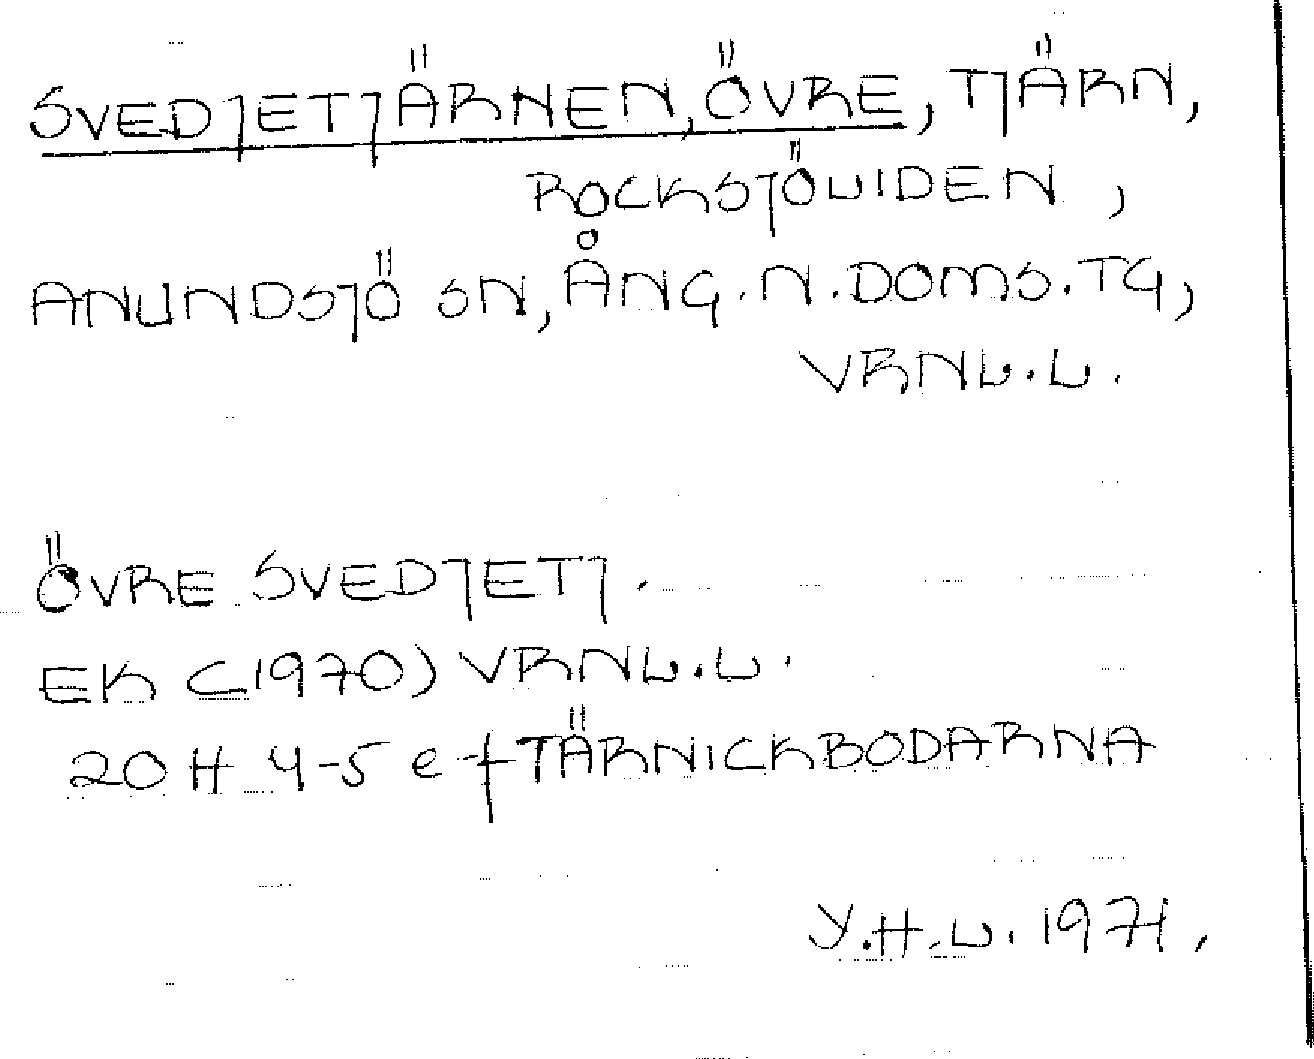 SVEDJETJÄRNEN, ÖVRE, TJÄRN,
ROCKSJÖLIDEN,
ANUNDSJÖ SN, ÅNG. N. DOMS. TG,
VRNL.L.
ÖVRE SVEDJETJ.
EK (1970) VRNL.L.
20 H 4-5 e-f TÄRNICKBODARNA
Y.H.L. 1971.